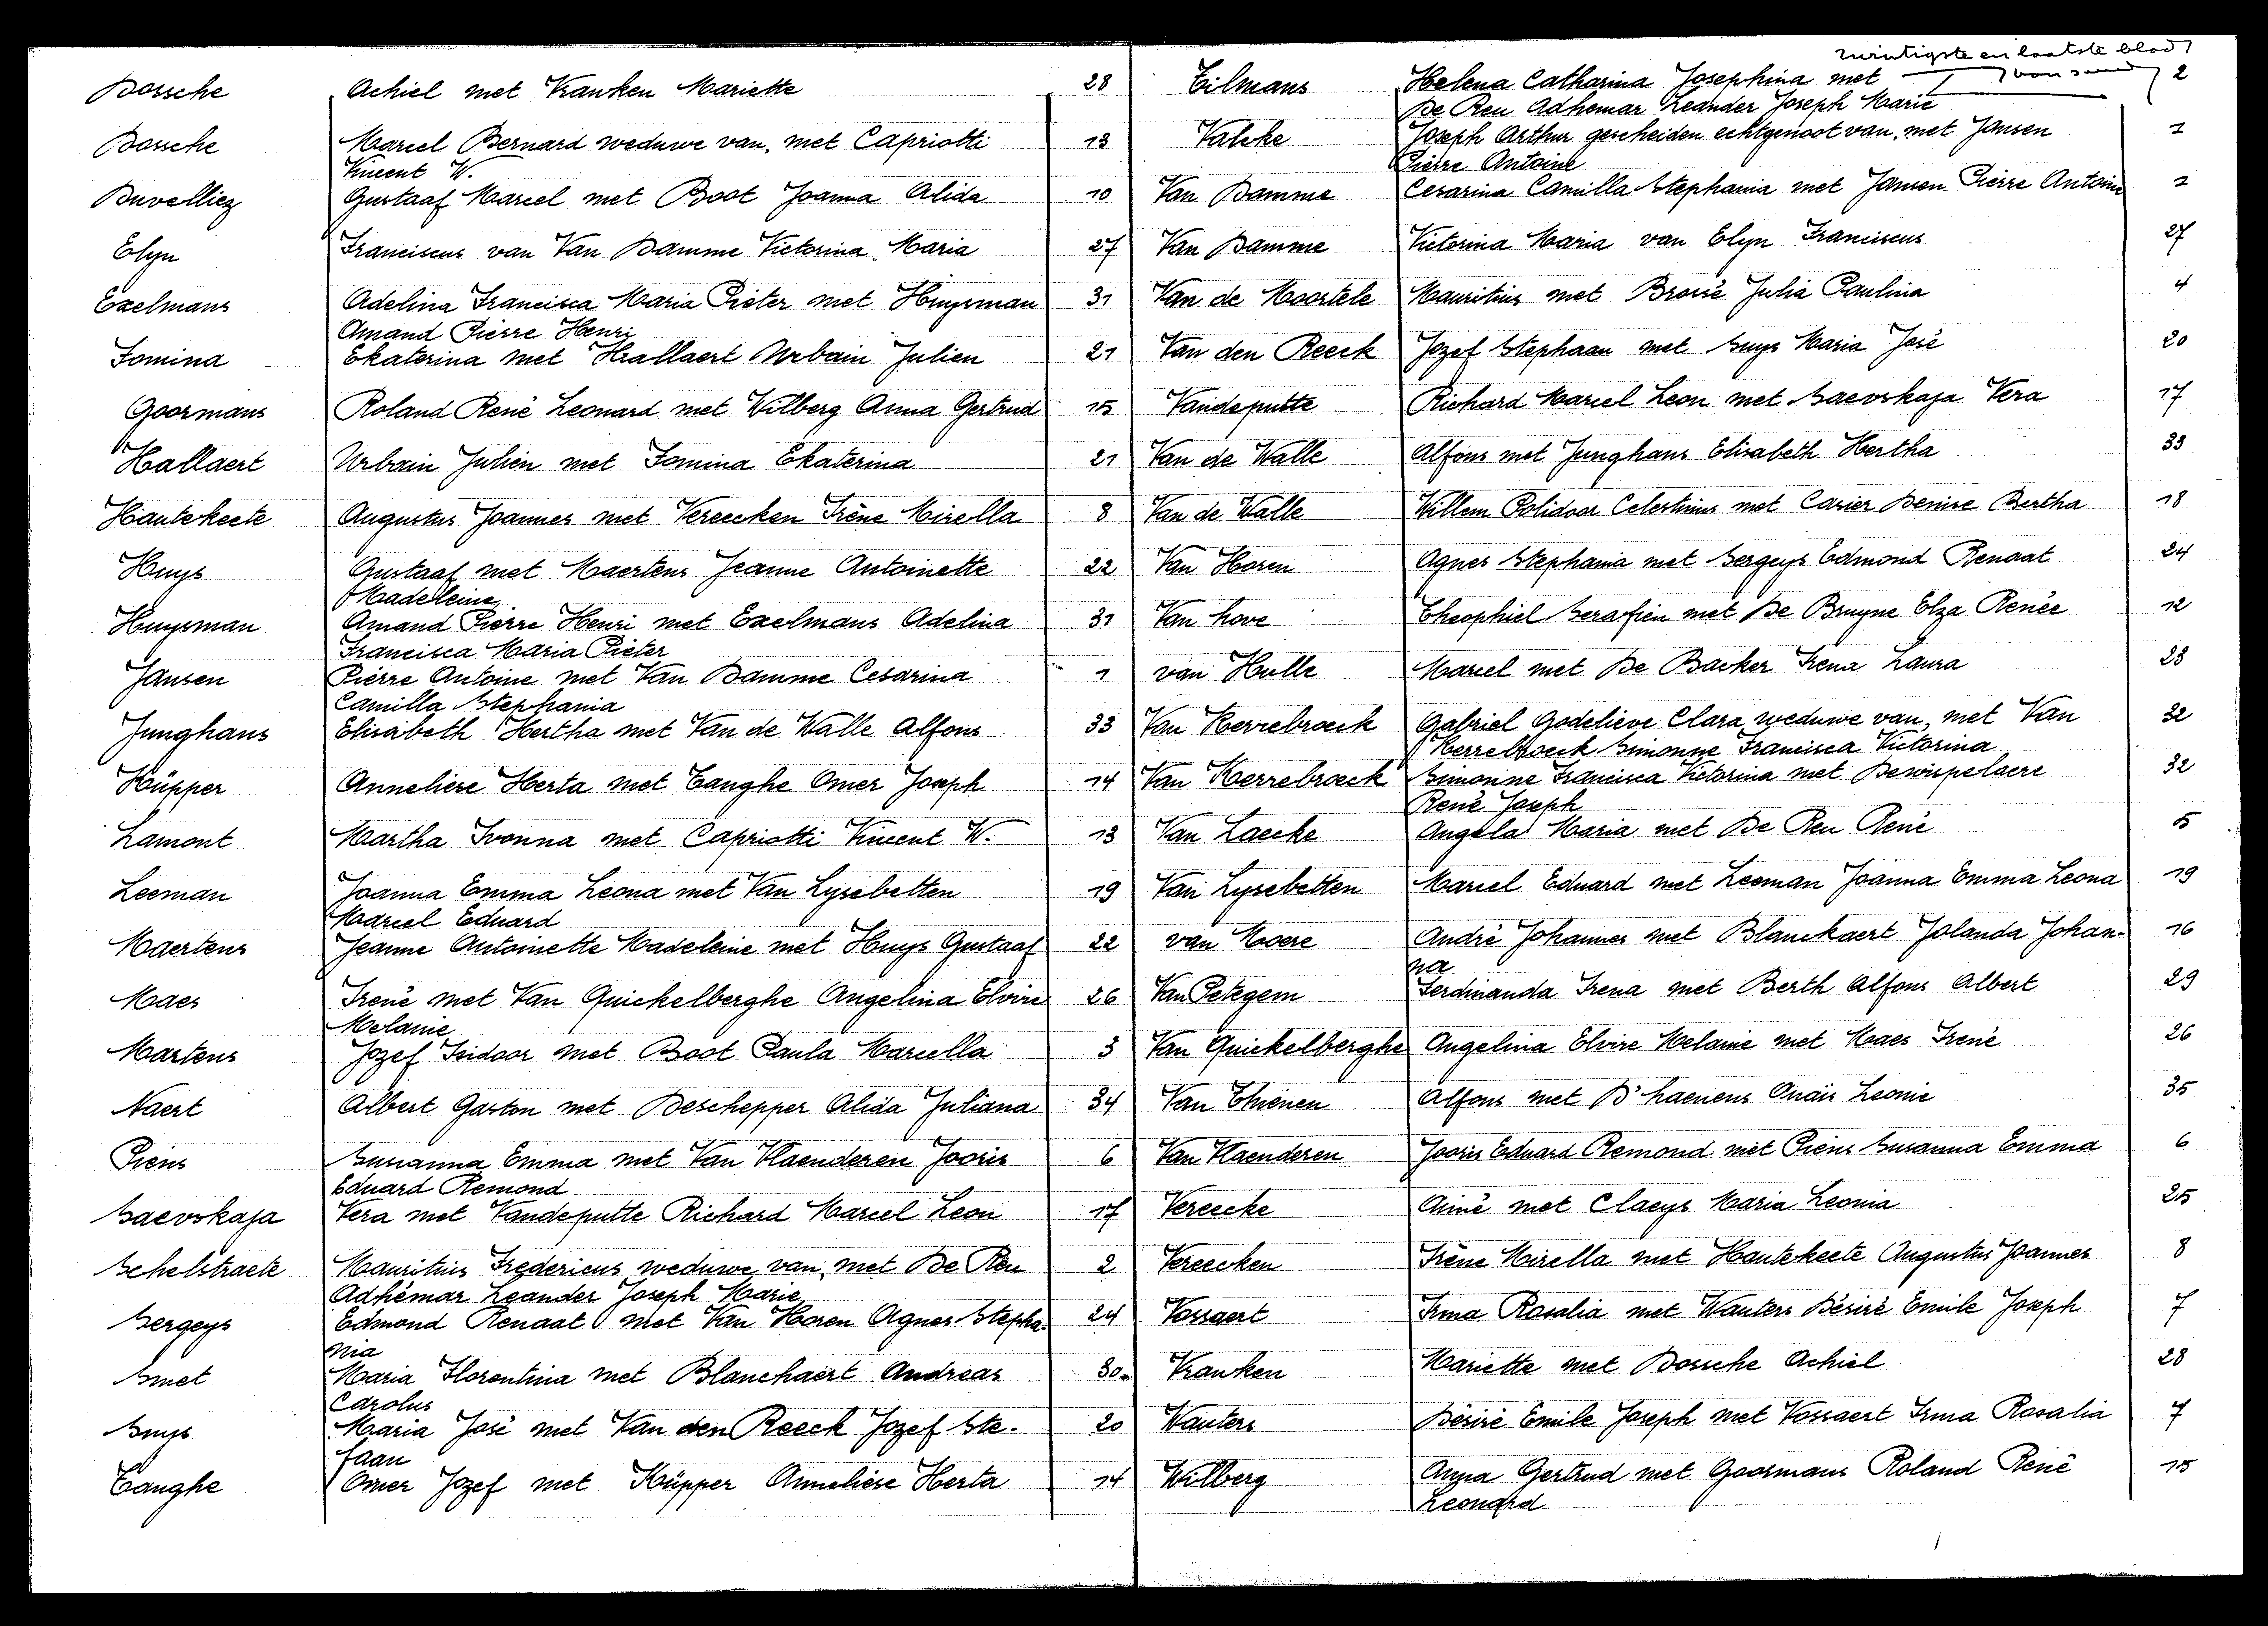 Dossche Achiel met Vranken Mariette 28
Dossche Marcel Bernard weduwe van, met Capriotti 13
Vincent W.
Duvelliez Gustaaf Marcel met Boot Joanna Alida 10
Elyn Franciscus van Van Damme Victorina Maria 27
Exelmans Adelina Francisca Maria Pieter met Huysman 31
Amand Pierre Henri
Fomina Ekaterina met Hallaert Urbain Julien 21
Goormans Roland René Leonard met Wilberg Anna Gertrud 15
Hallaert Urbain Julien met Fomina Ekaterina 21
Hautekeete Augustus Joannes met Vereecken Irène Mirella 8
Huys Gustaaf met Maertens Jeanne Antoinette 22
Madeleine
Huysman Amand Pierre Henri met Exelmans Adelina 31
Francisca Maria Pieter
Jansen Pierre Antoine met Van Damme Cesarina 1
Camilla Stephania
Junghans Elisabeth Hertha met Van de Walle Alfons 33
Küpper Anneliese Herta met Tanghe Omer Joseph 14
Lamont Martha Ivonna met Capriotti Vincent W. 13
Leeman Joanna Emma Leona met Van Lysebetten 19
Marcel Eduard
Maertens Jeanne Antoinette Madeleine met Huys Gustaaf 22
Maes Irené met Van Quickelberghe Angelina Elvire 26
Melanie
Martens Jozef Isidoor met Boot Paula Marcella 3
Naert Albert Gaston met Deschepper Alida Juliana 34
Piens Susanna Emma met Van Vlaenderen Jooris 6
Eduard Remond
Saevskaja Vera met Vandeputte Richard Marcel Leon 17
Schelstraete Mauritius Fredericus weduwe van, met De Reu 2
Adhémar Leander Joseph Marie
Sergeys Edmond Renaat met Van Horen Agnes Stepha-24
nia
Smet Maria Florentina met Blanchaert Andreas 30.
Carolus
Suys Maria José met Van den Reeck Jozef Ste- 20
faan
Tanghe Omer Jozef met Küpper Anneliese Herta 14
twintigste en laatste blad
Tilmans Helena Catharina Josephina met 2
De Reu Adhemar Leander Joseph Marie
Valcke Joseph Arthur gescheiden echtgenoot van, met Jansen 1
Pierre Antoine
Van Damme Cesarina Camilla Stephania met Jansen Pierre Antoine 1
Van Damme Victorina Maria van Elyn Franciscus 27
Van de Moortele Mauritius met Brossé Julia Paulina 4
Van den Reeck Jozef Stephaan met Suys Maria José 20
Vandeputte Richard Marcel Leon met Saevskaja Vera 17
Van de Walle Alfons met Junghans Elisabeth Hertha 33
Van de Walle Willem Polidoor Celestinus met Carier Denise Bertha 18
Van Horen Agnes Stephania met Sergeys Edmond Renaat 24
Van hove Theophiel Serafien met De Bruyne Elza Renée 12
van Hulle Marcel met De Backer Irena Laura 23
Van Kerrebroeck Gabriel Godelieve Clara weduwe van, met Van 32
Kerrebroeck Simonne Francisca Victorina
Van Kerrebroeck Simonne Francisca Victorina met Dewispelaere 32
René Joseph
Van Laecke Angela Maria met De Reu René 5
Van Lysebetten Marcel Eduard met Leeman Joanna Emma Leona 19
van Moere André Johannes met Blanckaert Jolanda Johan- 16
na
Van Petegem Ferdinanda Irena met Berth Alfons Albert 29
Van Quickelberghe Angelina Elvire Melanie met Maes Irené 26
Van Thienen Alfons met D'haenens Onaïs Leonie 35
Van Vlaenderen Jooris Eduard Remond met Piens Susanna Emma 6
Vereecke Aimé met Claeys Maria Leonia 25
Vereecken Irène Mirella met Hautekeete Augustus Joannes 8
Vossaert Irma Rosalia met Wauters Désiré Emile Joseph 7
Vranken Mariette met Dossche Achiel 28
Wauters Désiré Emile Joseph met Vossaert Irma Rosalia 7
Wilberg Anna Gertrud met Goormans Roland René 15
Leonard